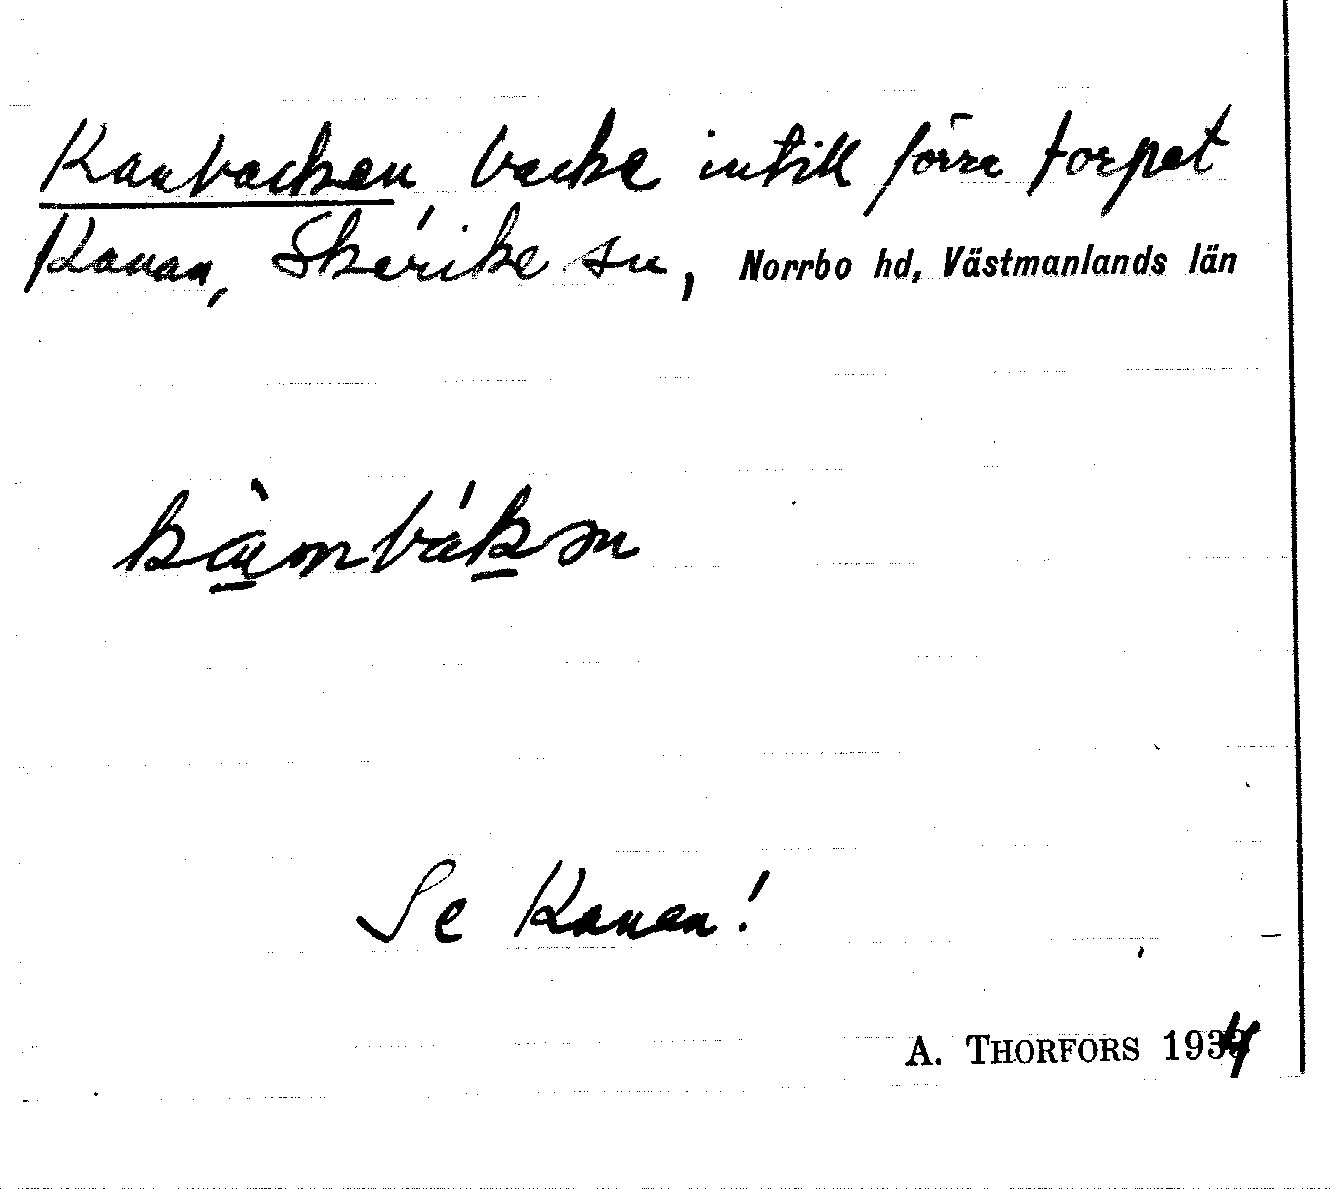 Kanbacken, backe intill förra torpet
Kanan, Skerike sn, Norrbo hd, Västmanlands län
Se Kanan!
A. THORFORS 1934